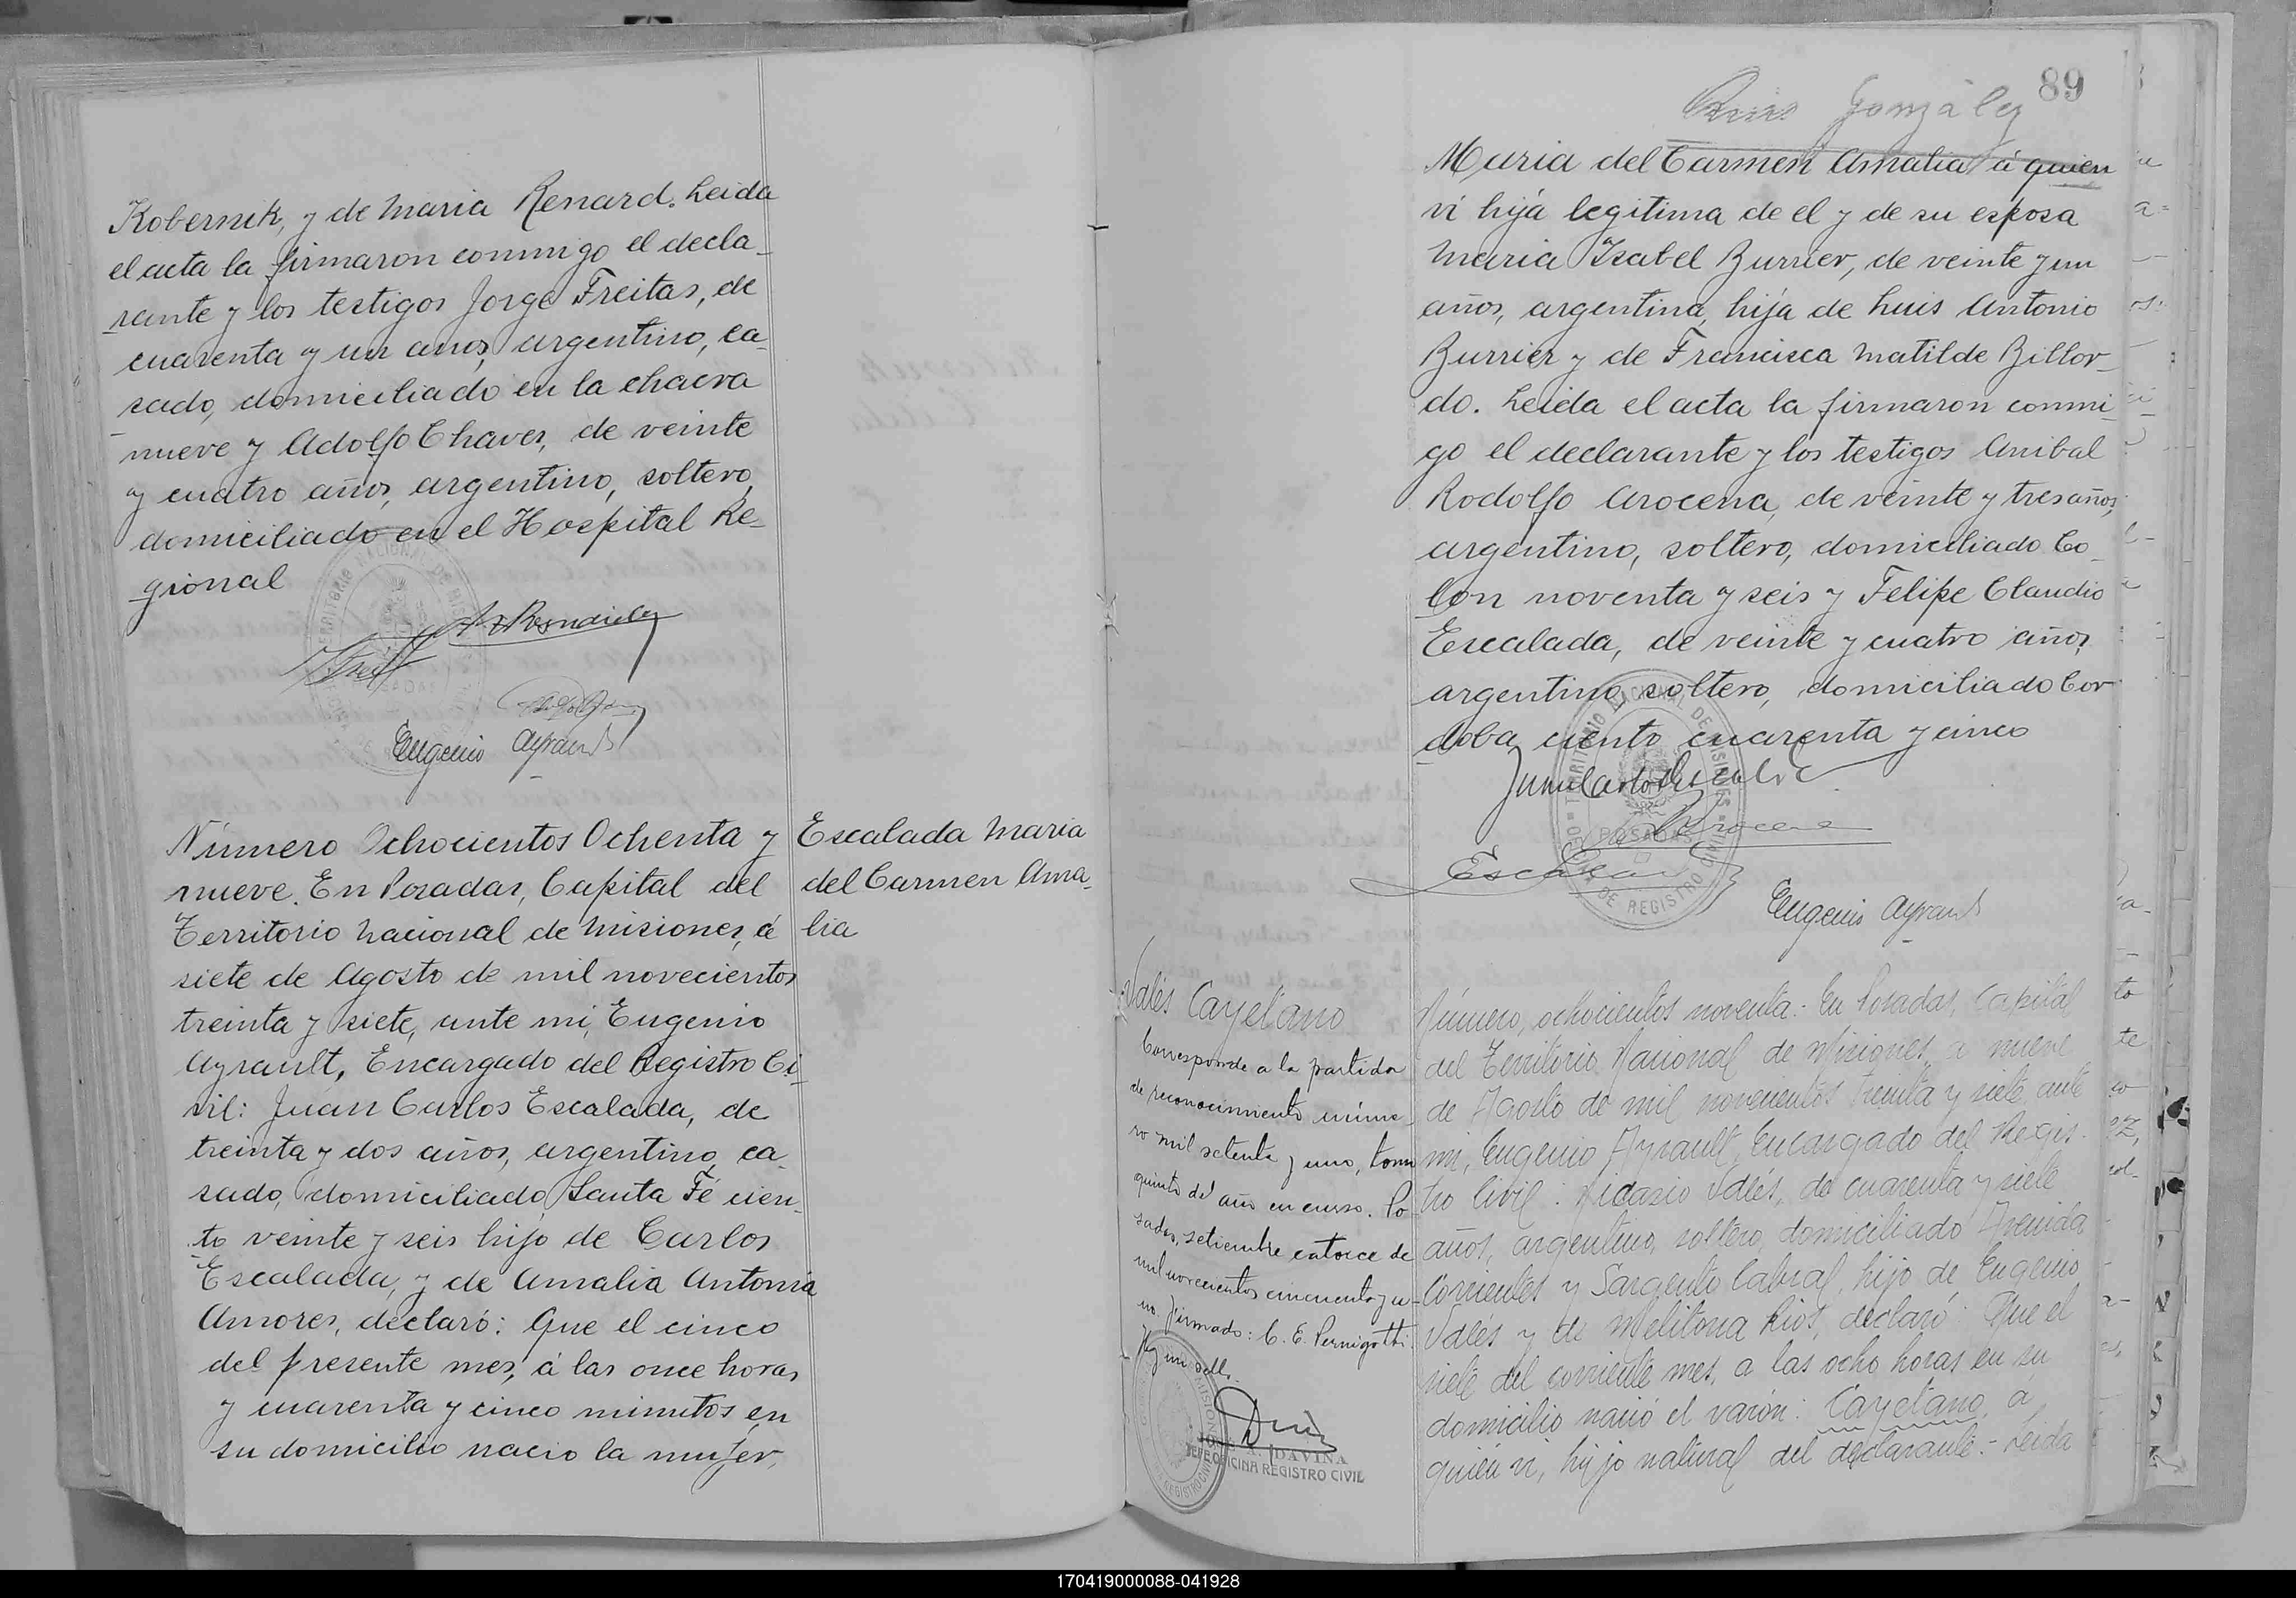 Kobernik, y de Maria Renard. Leida
el acta la firmaron conmigo el decla-
rante y los testigos Jorge Freitas, de
cuarenta y un años, argentino, ca-
sado, domiciliado en la chacra
nueve y Adolfo Chaves, de veinte
y cuatro años, argentino, soltero,
domiciliado en el Hospital Re-
gional
Eugenio Ayrault
Número Ochocientos Ochenta y
nueve. En Posadas, Capital del
Territorio Nacional de Misiones, á
siete de Agosto de mil novecientos
treinta y siete, ante mi, Eugenio
Ayrault, Encargado del Registro Ci-
vil: Juan Carlos Escalada, de
treinta y dos años, argentino, ca-
sado, domiciliado Santa Fé cien-
to veinte y seis hijo de Carlos
Escalada, y de Amalia Antonia
Amores, declaró: Que el cinco
del presente mes, á las once horas
y cuarenta y cinco minutos en
su domicilio nacio la mujer,
Escalada Maria
del Carmen Ama-
lia
89
González
Maria del Carmen Amalia á quien
vi hija legitima de el y de su esposa
Maria Isabel Burrier, de veinte y un
años, argentina, hija de Luis Antonio
Burrier y de Francisca Matilde Billor-
do. Leida el acta la firmaron conmi-
go el declarante y los testigos Anibal
Rodolfo Arocena, de veinte y tres años,
argentino, soltero, domiciliado Co-
lon noventa y seis y Felipe Claudio
Escalada, de veinte y cuatro años,
argentino, soltero, domiciliado Cor
doba ciento cuarenta y cinco
Eugenio Ayrault
TERRITORIO NACIONAL DE MISIONES
POSADAS
OFICINA DE REGISTRO CIVIL
Valdés Cayetano
Corresponde a la partida
de reconocimiento núme-
ro mil setenta y uno, tomo
quinto del año en curso. Po-
sadas, setiembre catorce de
mil novecientos cincuenta y u-
no. Firmado: C. E. Pernigotti.
Hay un sello.
DAVIÑA
JEFE OFICINA REGISTRO CIVIL
Número, ochocientos noventa:- En Posadas, Capital
del Territorio Nacional de Misiones, a nueve
de Agosto de mil novecientos treinta y siete, ante
mi, Eugenio Ayrault, Encargado del Regis-
tro Civil: Nicasio Valdés, de cuarenta y siete
años, argentino, soltero, domiciliado Avenida
Corrientes y Sargento Cabral, hijo de Eugenio
Valdés y de Melitona Rios, declaró: Que el
siete del corriente mes, a las ocho horas en su
domicilio nació el varón: Cayetano, a
quién vi, hijo natural del declarante.- Leida
170419000088-041928